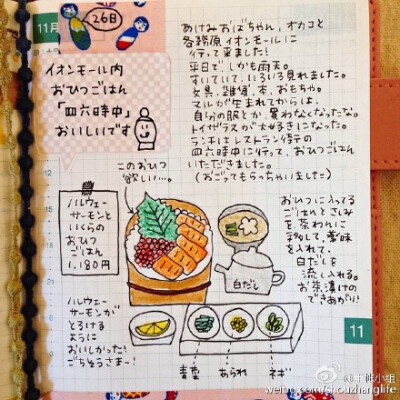 11月
26日
イオンモール内
おひつごはん
「四六時中」
おいしいです
あけみおばちゃん、オカコと
各務原イオンモールに
行って来ました!
平日でしかも雨天。
すいていて、いろいろ見れました。
文具、雑貨、本、おもちゃ。
マルが生まれてからは、
自分の服とか、買わなくなったな。
トイザラスが大好きになった。
ランチはレストラン街の
四六時中に行って、おひつごはん
いただきました。
(おごってもらっちゃいました)
このおひつ
欲しい…。
ハルウェー
サーモンと
いくらの
おひつ
ごはん
1,180円
おひつに入ってる
ごはんとさしみ
を茶わんに
移して、薬味
を入れて、
白だしを
流し入れる。
お茶漬けの
できあがり!
白だし
ハルウェー
サーモンが
とろける
ように
おいしかった!
ごちそうさまー!
青菜 あられ ネギ
11
weibo.com/shouzhanglife